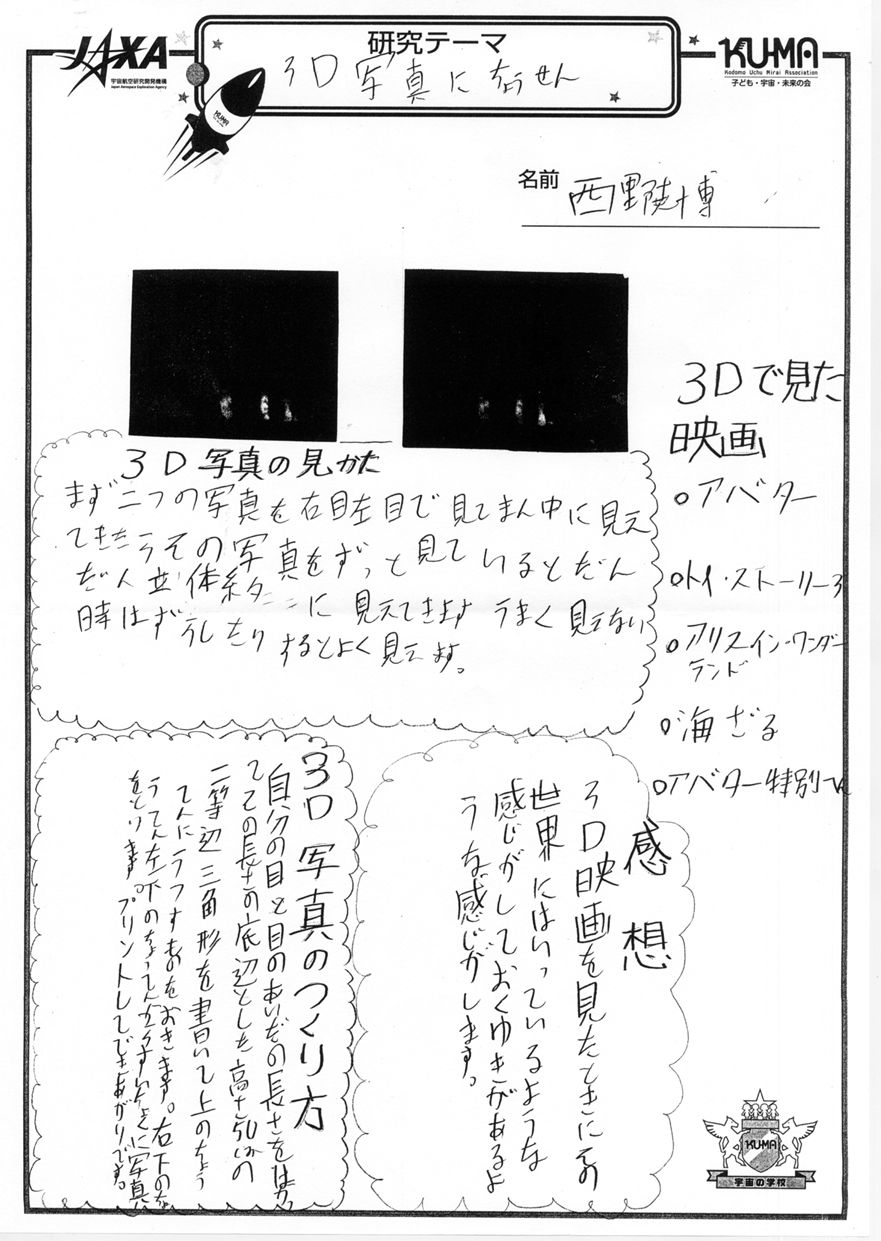 JAXA
宇宙航空研究開発機構
Japan Aerospace Exploration Agency
研究テーマ
3D写真にちょうせん
KUMA
Kodomo Uchu Mirai Association
子ども・宇宙・未来の会
KUMA
名前
西野 博
3Dで見た
映画
○アバター
○トイ・ストーリー3
○アリスイン・ワンダー
ランド
○海ざる
○アバター特別へん
3D写真の見かた
まず二つの写真を右目左目で見てまん中に見え
てきたらその写真をずっと見ているとだん
だん立体系に見えてきますうまく見えない
時はずらしたりするとよく見えます。
感想
3D映画を見たときにその
世界にはいっているような
感じがしておくゆきがあるよ
うな感じがします。
3D写真のつくり方
自分の目と目のあいだの長さをはかっ
てその長さの底辺とした高さ50cmの
二等辺三角形を書いて上のちょう
てんにうつすものをおきます。右下のちょ
うてん左下のちょうてんからすいちょくに写真
をとります。プリントしてできあがりです。
KUMA
宇宙の学校